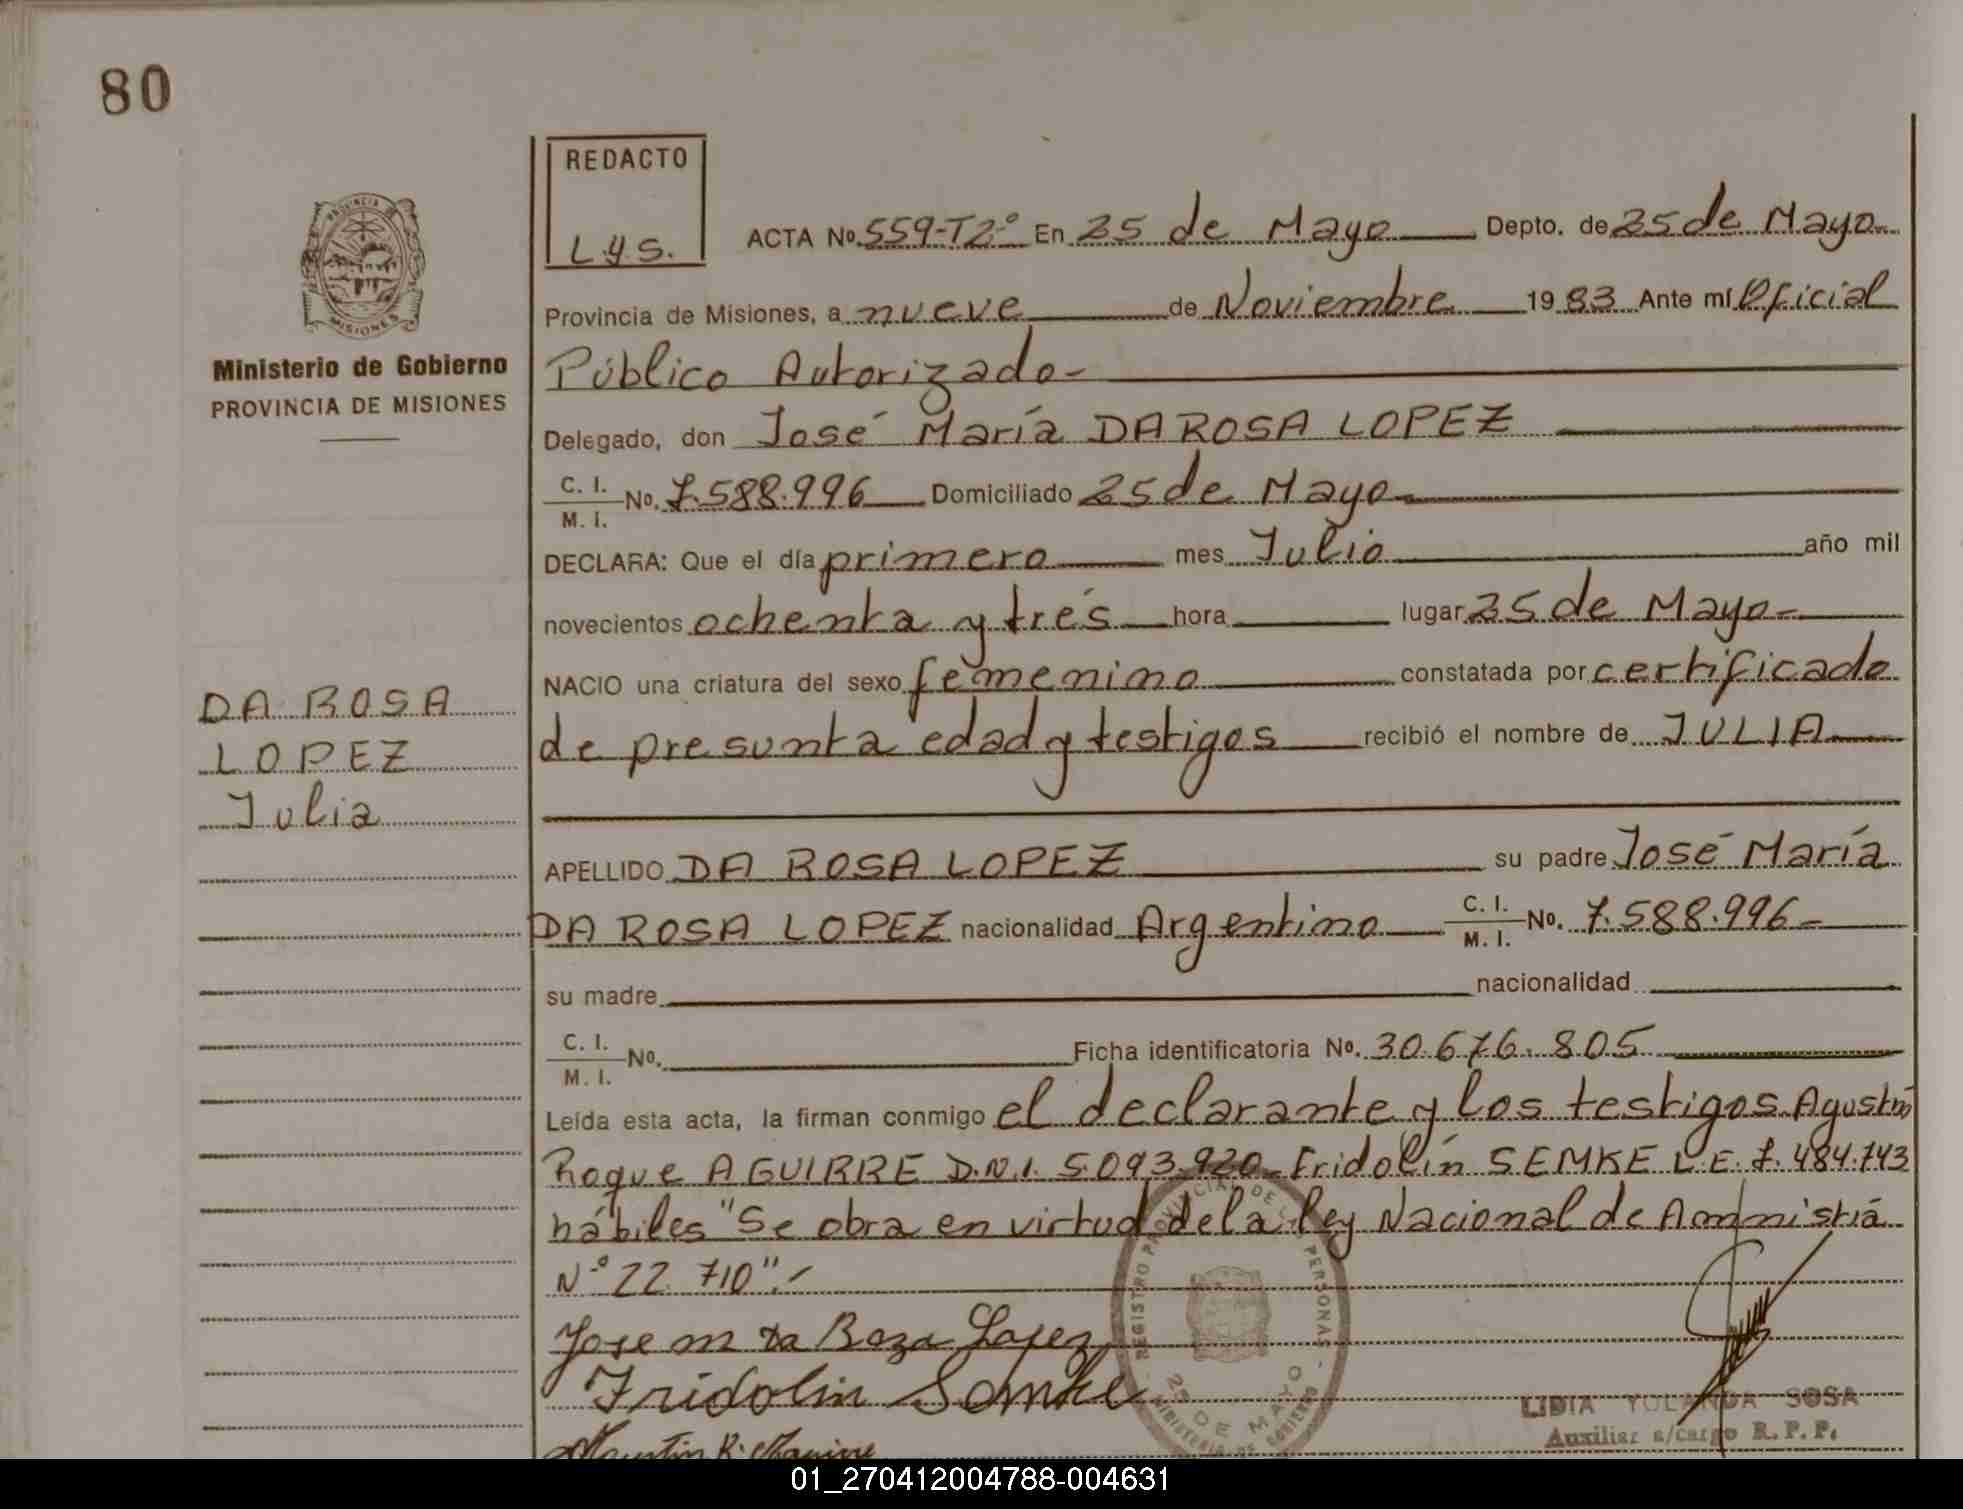 80
REDACTO
L.Y.S.
PROVINCIA DE
MISIONES
Ministerio de Gobierno
PROVINCIA DE MISIONES
ACTA No. 559-T2º En 25 de Mayo Depto. de 25 de Mayo
Provincia de Misiones, a nueve de Noviembre 1983 Ante mí Oficial
Público Autorizado-
Delegado, don José María DA ROSA LOPEZ
C. I. M. I. No. 7.588.996 Domiciliado 25 de Mayo
DECLARA: Que el día primero mes Julio año mil
novecientos ochenta y trés hora lugar 25 de Mayo-
NACIO una criatura del sexo femenino constatada por certificado
de presunta edad y testigos recibió el nombre de JULIA
DA ROSA
LOPEZ
Julia
APELLIDO DA ROSA LOPEZ su padre José María
DA ROSA LOPEZ nacionalidad Argentino C. I. M. I. No. 7.588.996-
su madre nacionalidad
C. I. M. I. No. Ficha identificatoria No. 30.676.805
Leída esta acta, la firman conmigo el declarante y los testigos Agustín
Roque AGUIRRE D.N.I. 5.093.920- Fridolín SEMKE L.E. 7.484.743
hábiles "Se obra en virtud de la ley Nacional de Ammistiá
Nº 22.710".-
Jose m da Roza Lopez
Fridolin Semke
REGISTRO PROVINCIAL DE L PERSONAS -
25 DE MAYO
MINISTERIO DE GOBIERNO
LIDIA YOLANDA SOSA
Auxiliar a/cargo R. P. P.
01_270412004788-004631